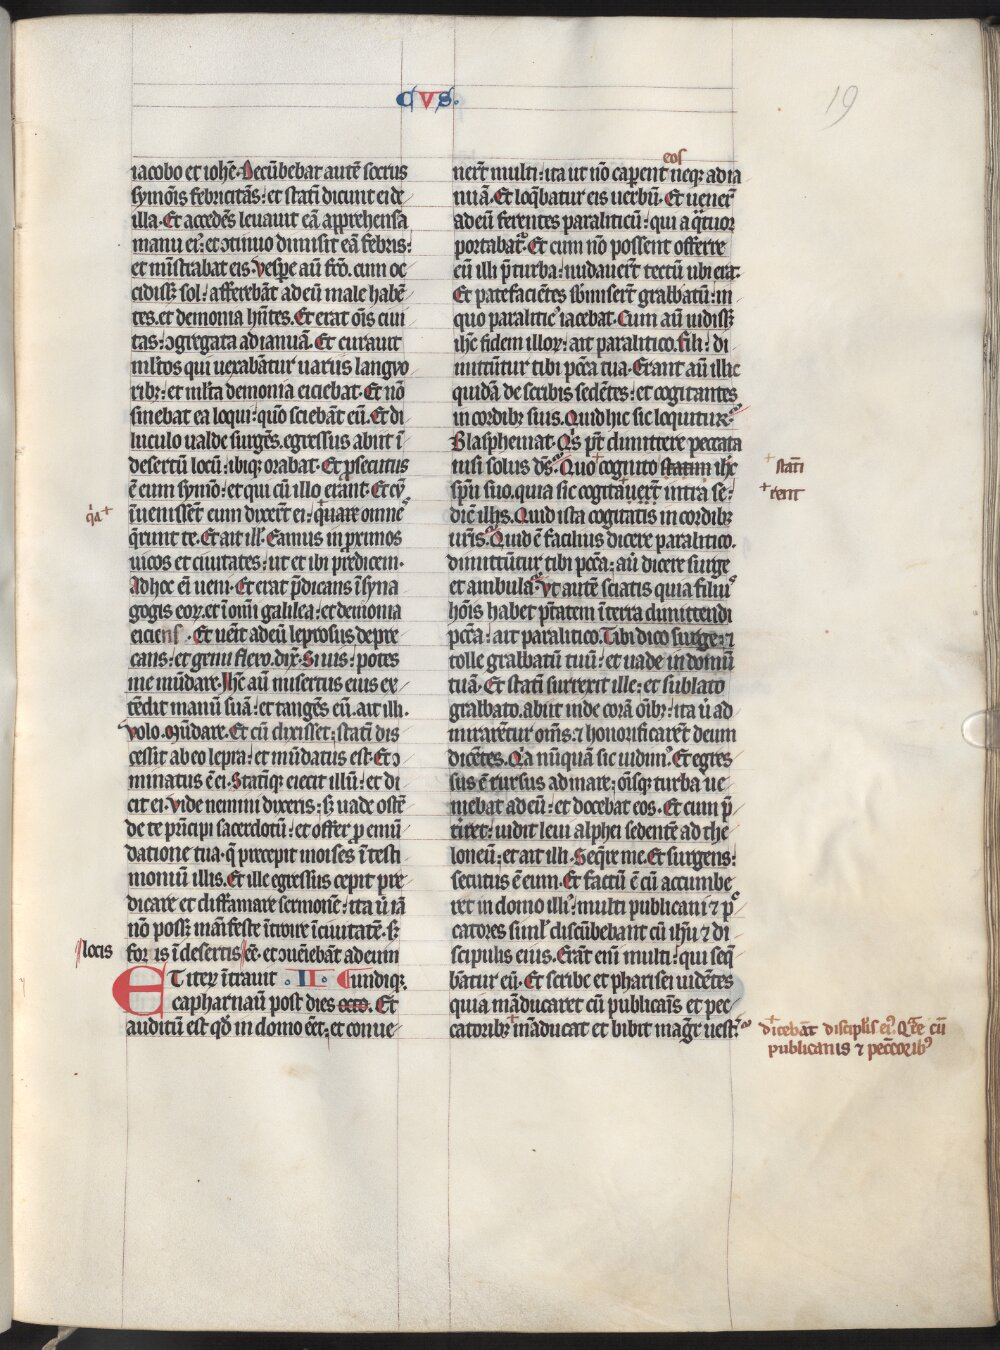 CVS.
19
iacobo et ioħe. Decūbebat autē socrus
symōis febricitās: et statī dicunt ei de
illa. Et accedēs leuauit eā apprehensa
manu eiꝰ: et ɔtinuo dimisit eā febris:
et mīstrabat eis. Vespe aū fc̄o. cum oc
cidissꝫ sol: afferebāt ad eū male habē
tes. et demonia hn̄tes. Et erat ōis ciui
tas: ɔgregata ad ianuā. Et curauit
ml̄tos qui uexabātur uariis langvo
ribꝫ: et ml̄ta demonia eiciebat. Et nō
sinebat ea loqui: quō sciebāt eū. Et di
luculo ualde surgēs. egressus abiit ī
desertū locū: ibiqꝫ orabat. Et ꝓsecutus
ē eum symō: et qui cū illo erant. Et cū
īuenissēt eum dixert̄ ei: quare omne
q̄runt te. Et ait illꝭ. Eamus in ꝓximos
uicos et ciuitates: ut et ibi predicem.
Ad hoc eī ueni. Et erat p̄dicans ī syna
gogis eoꝝ. et ī omī galilea: et demonia
eiciens. Et ueīt ad eū leprosus depre
cans: et genu flexo. dix̄. Si uis: potes
me mūdare. Ihc̄ aū misertus eius ex
tēdit manū suā: et tangēs eū. ait illi.
Volo. Mūdare. Et cū dixisset: statī dis
cessit ab eo lepra: et mūdatus est. Et ɔ
minatus ē ei. Statīqꝫ eiecit illū: et di
cit ei. Vide nemini dixeris: sꝫ uade ostē
de te prīcipi sacerdotū: et offer ꝓ emū
datione tua. q̄ precepit moises ī testi
moniū illis. Et ille egressus cepit pre
dicare et diffamare sermonē: ita ū iā
nō possꝫ manifeste ītroire ī ciuitatē. sꝫ
foris ī desertis eē. et ɔueīebāt ad eum
Et iteꝝ ītrauit .II. undiqꝫ.
capharnaū post dies octo. Et
auditū est qđ in domo eēt: et conue
qia
locis
eos
nert̄ multi: ita ut nō caperent neqꝫ ad ia
nuā. Et loq̄batur eis uerbū. Et uenert̄
ad eū ferentes paraliticū: qui a q̄tuor
portabat̄. Et cum nō possent offerre
eū illi p̄ turba: nudauert̄ tectū ubi erat.
Et patefaciētes sb̄misert̄ grabatū: in
quo paraliticꝰ iacebat. Cum aū uidissꝫ
ihc̄ fidem illoꝝ: ait paralitico. Fili: di
mittūtur tibi pc̄c̄a tua. Erant aū illic
quidā de scribis sedētes: et cogitantes
in cordibꝫ suis. Quid hic sic loquitur:
Blasphemat. Qis pt̄ dimittere peccata
nisi solus ds̄. Quo cognito statim ihc̄
spū suo. quia sic cogitauert̄ intra se:
dic̄ illis. Quid ista cogitatis in cordibꝫ
ur̄is. Quid ē facilius dicere paralitico.
dimittūtur tibi pc̄c̄a: aū dicere surge
et ambula. Vt autē sciatis quia filiꝰ
hoīs habet p̄tatem ī terra dimittendi
pc̄c̄a: ait paralitico. Tibi dico surge: ⁊
tolle grabatū tuū: et uade in domū
tuā. Et statī surrexit ille: et sublato
grabato. abiit inde corā oībꝫ: ita ū ad
mirarētur om̄s. ⁊ honorificaret̄ deum
dicētes. Qia nūquā sic uidimꝰ. Et egres
sus ē rursus ad mare: ōīsqꝫ turba ue
niebat ad eū: et docebat eos. Et cum p̄
tīret: uidit leui alphei sedentē ad the
loneū: et ait illi. Seq̄re me. Et surgens:
secutus ē eum. Et factū ē cū accumbe
ret in domo illiꝰ: multi publicani ⁊ pc̄
catores simꝉ discūbebant cū ihū ⁊ di
scipulis eius. Erāt eīm multi: qui seq̄
bātur eū. Et scribe et pharisei uidētes
quia māducaret cū publicaīs et pec
catoribꝫ māducat et bibit mag̅r uest̄
statī
rent
dicebāt disciplīs eiꝰ. Qāre cū
publicanis ⁊ pecc̄oribꝰ